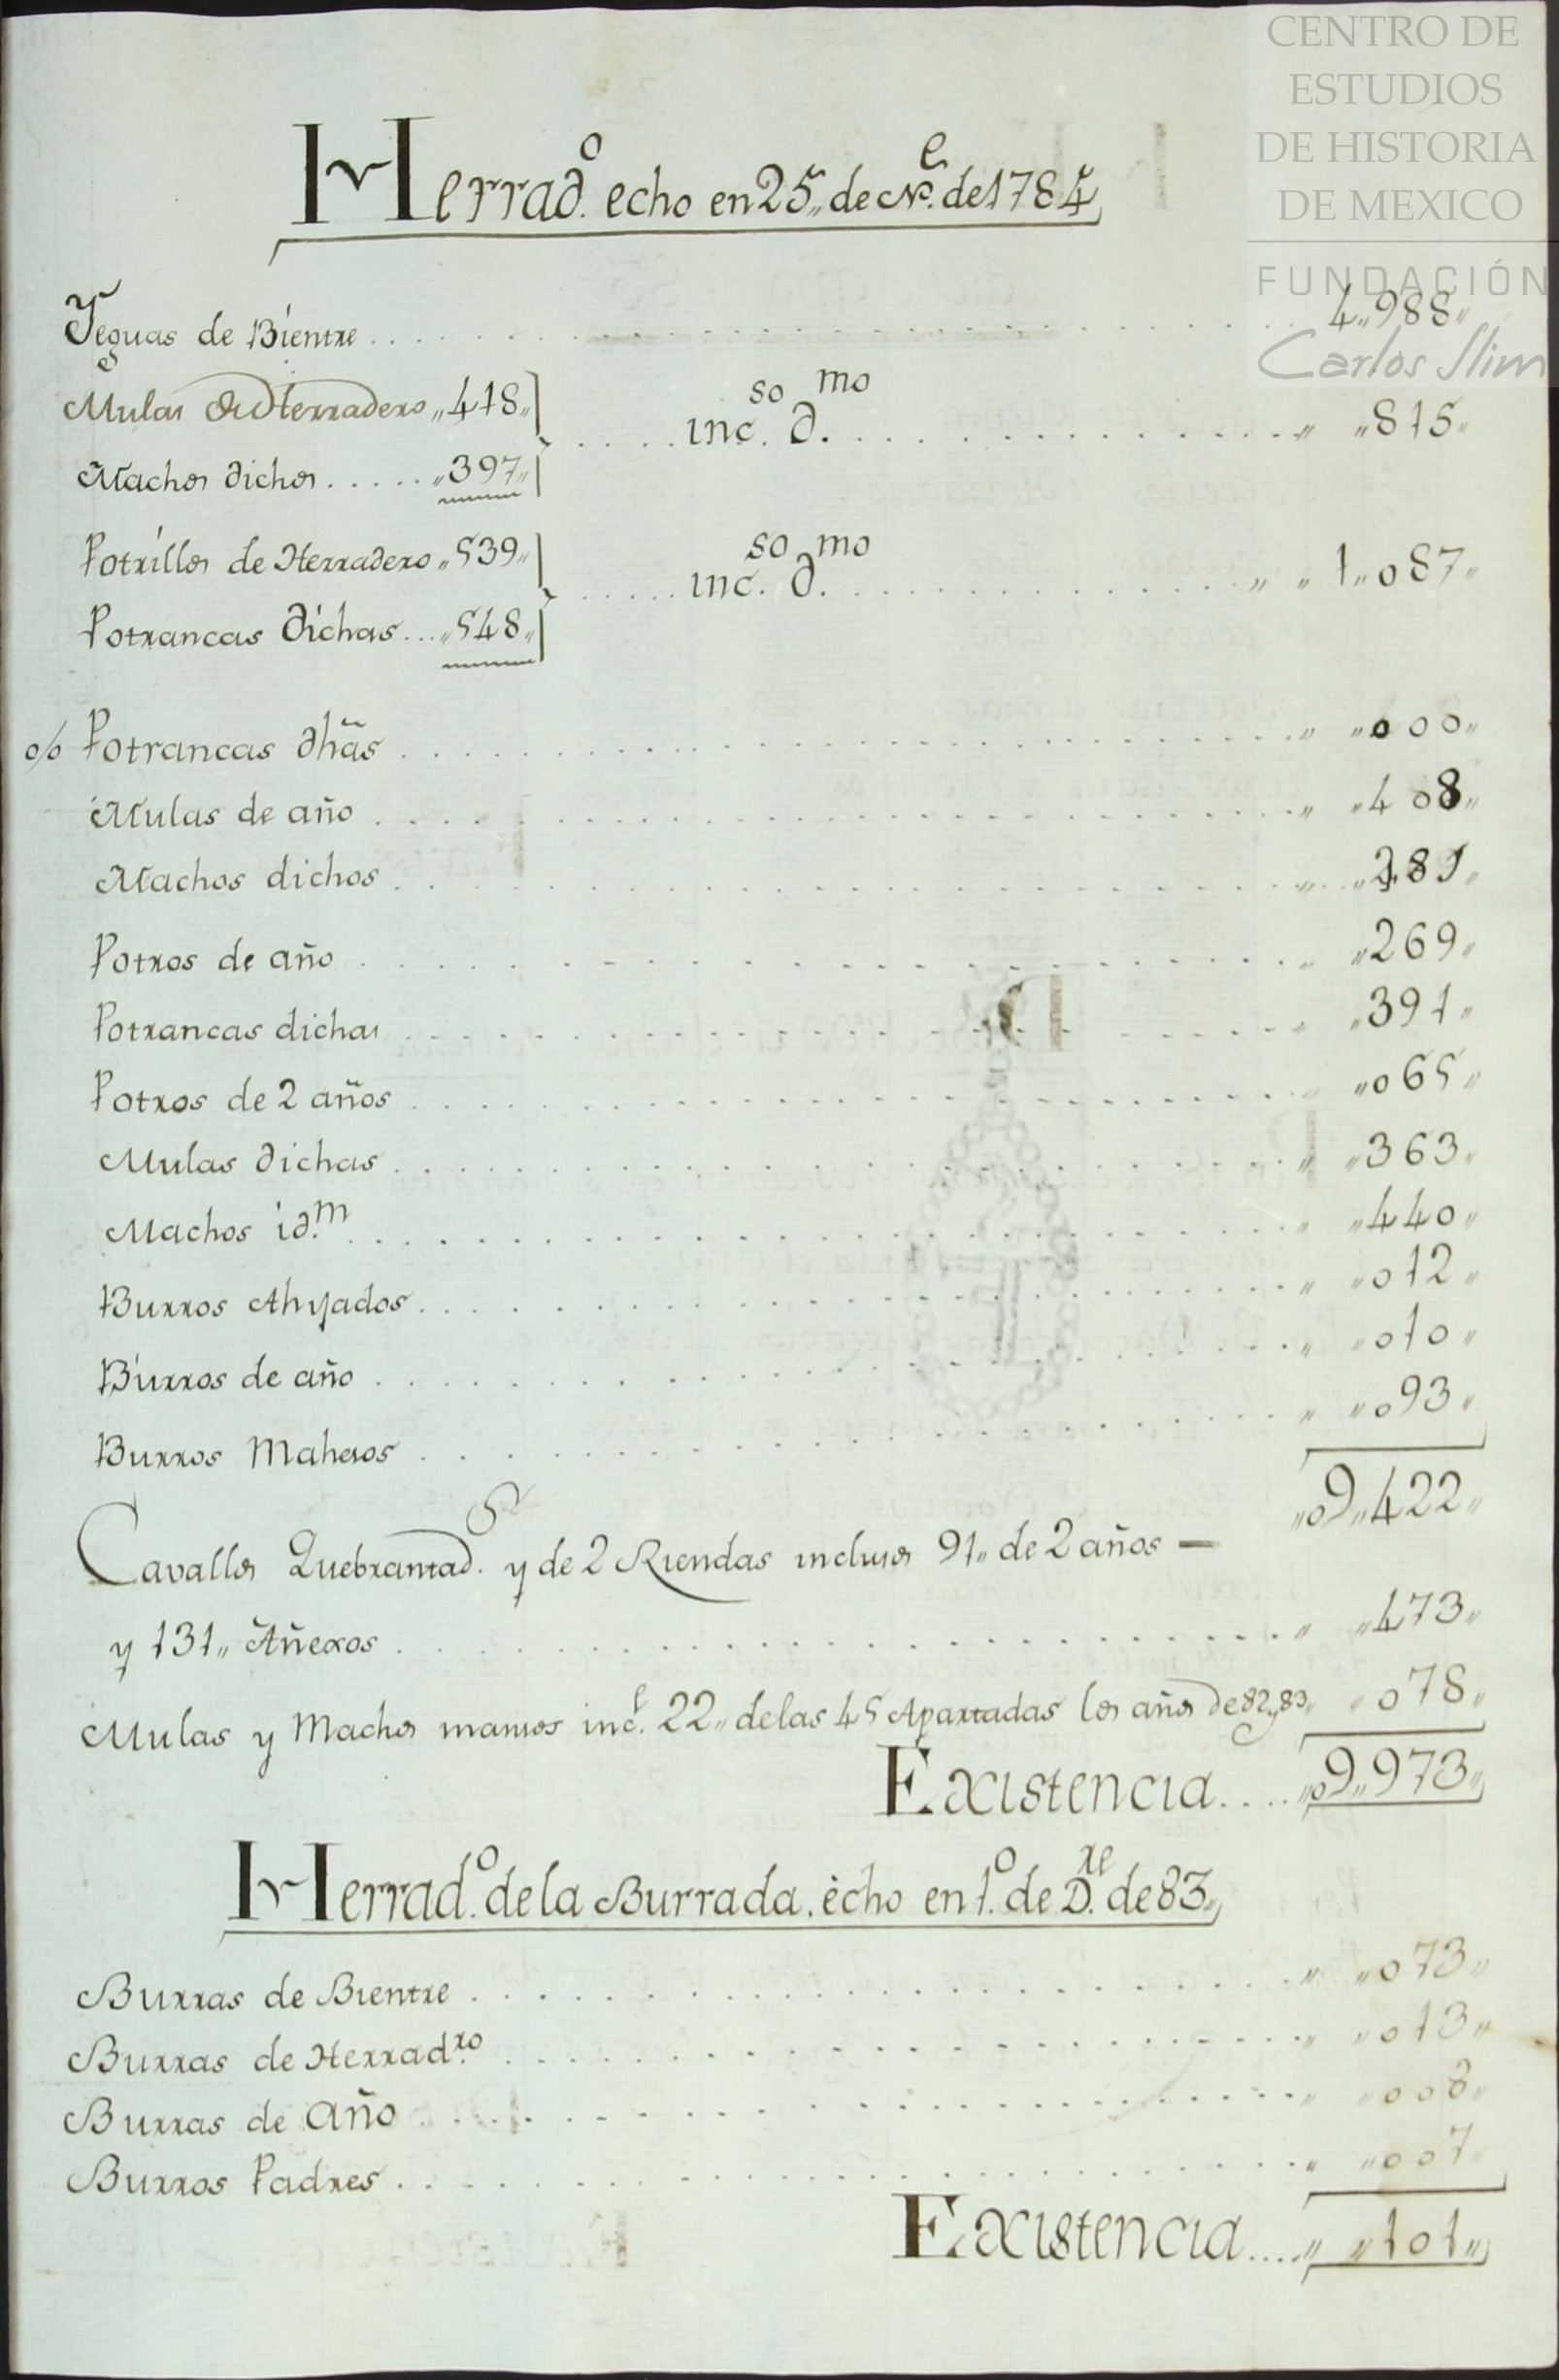 CENTRO DE
ESTUDIOS
DE HISTORIA
DE MEXICO
FUNDACIÓN
Carlos Slim
Herrad.º echo en 25,, de N.e de 1784,,
Yeguas de Bientre . . . . 4,,988,,
Mulas de Herradero ,,418,, inc.so d.mo . . . . ,, ,,815,,
Machos dichos . . . . ,,397,,
Potrillos de Herradero ,,539,, inc.so d.mo . . . . ,, ,, 1,,087,,
Potrancas dichas . . . ,,548,,
o/o Potrancas dhãs . . . . ,, ,,000,,
Mulas de año . . . . ,, ,,408,,
Machos dichos . . . . ,, ,,281,,
Potros de año . . . . ,, ,,269,,
Potrancas dichas . . . . ,, ,,391,,
Potros de 2 años . . . . ,, ,,065,,
Mulas dichas . . . . ,, ,,363,,
Machos id.m . . . . ,, ,,440,,
Burros Ahyados . . . . ,, ,,012,,
Burros de año . . . . ,, ,,010,,
Burros Maheros . . . . ,, ,,093,,
,,09,,422,,
Cavallos Quebrantad.s y de 2 Riendas inclusos 91,, de 2 años —
y 131,, Añexos . . . . ,, ,,473,,
Mulas y Machos mansos inc.e 22,, de las 45 Apartadas los años de 82, y 83,, ,,078,,
Existencia . . . . ,,09,,973,,
Herrad.º de la Burrada, echo en 1.º de D.re de 83,,
Burras de Bientre . . . . ,, ,,073,,
Burras de Herrad.ro . . . . ,, ,,013,,
Burras de Año . . . . ,, ,,008,,
Burros Padres . . . . ,, ,,007,,
Existencia . . . . ,, ,,101,,